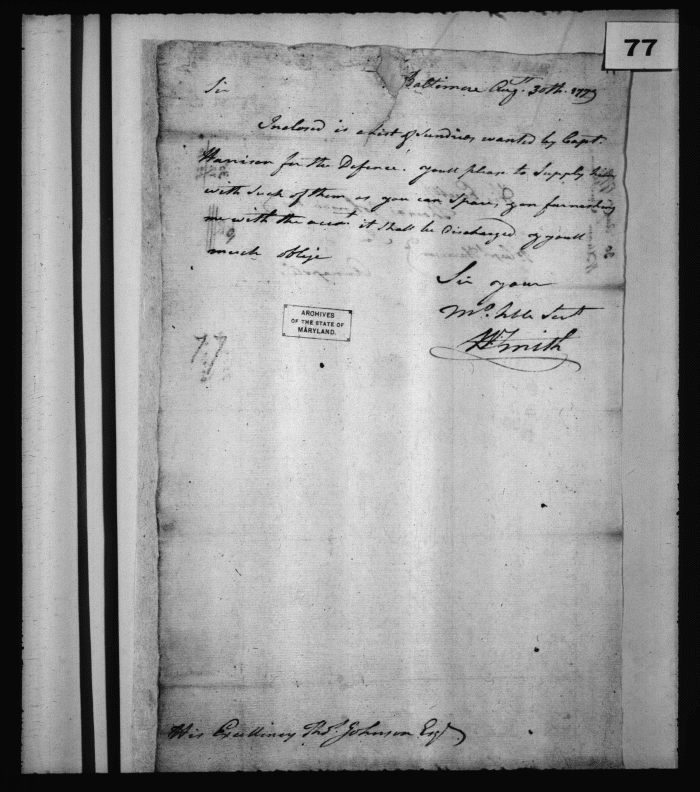 77
Baltimore Augt. 30th. 1779
Sir
Inclosed is a List of Sundries wanted by Capt.
Harrison for the Defence. youll please to Supply him
with Such of them as you can Spare, you furnishing
me with the accot. it Shall be Discharged & youll
much oblige
Sir your
Mo. hble Servt
Wm Smith
ARCHIVES
OF THE STATE OF
MARYLAND.
77
His Excellency Thos. Johnson Esqr